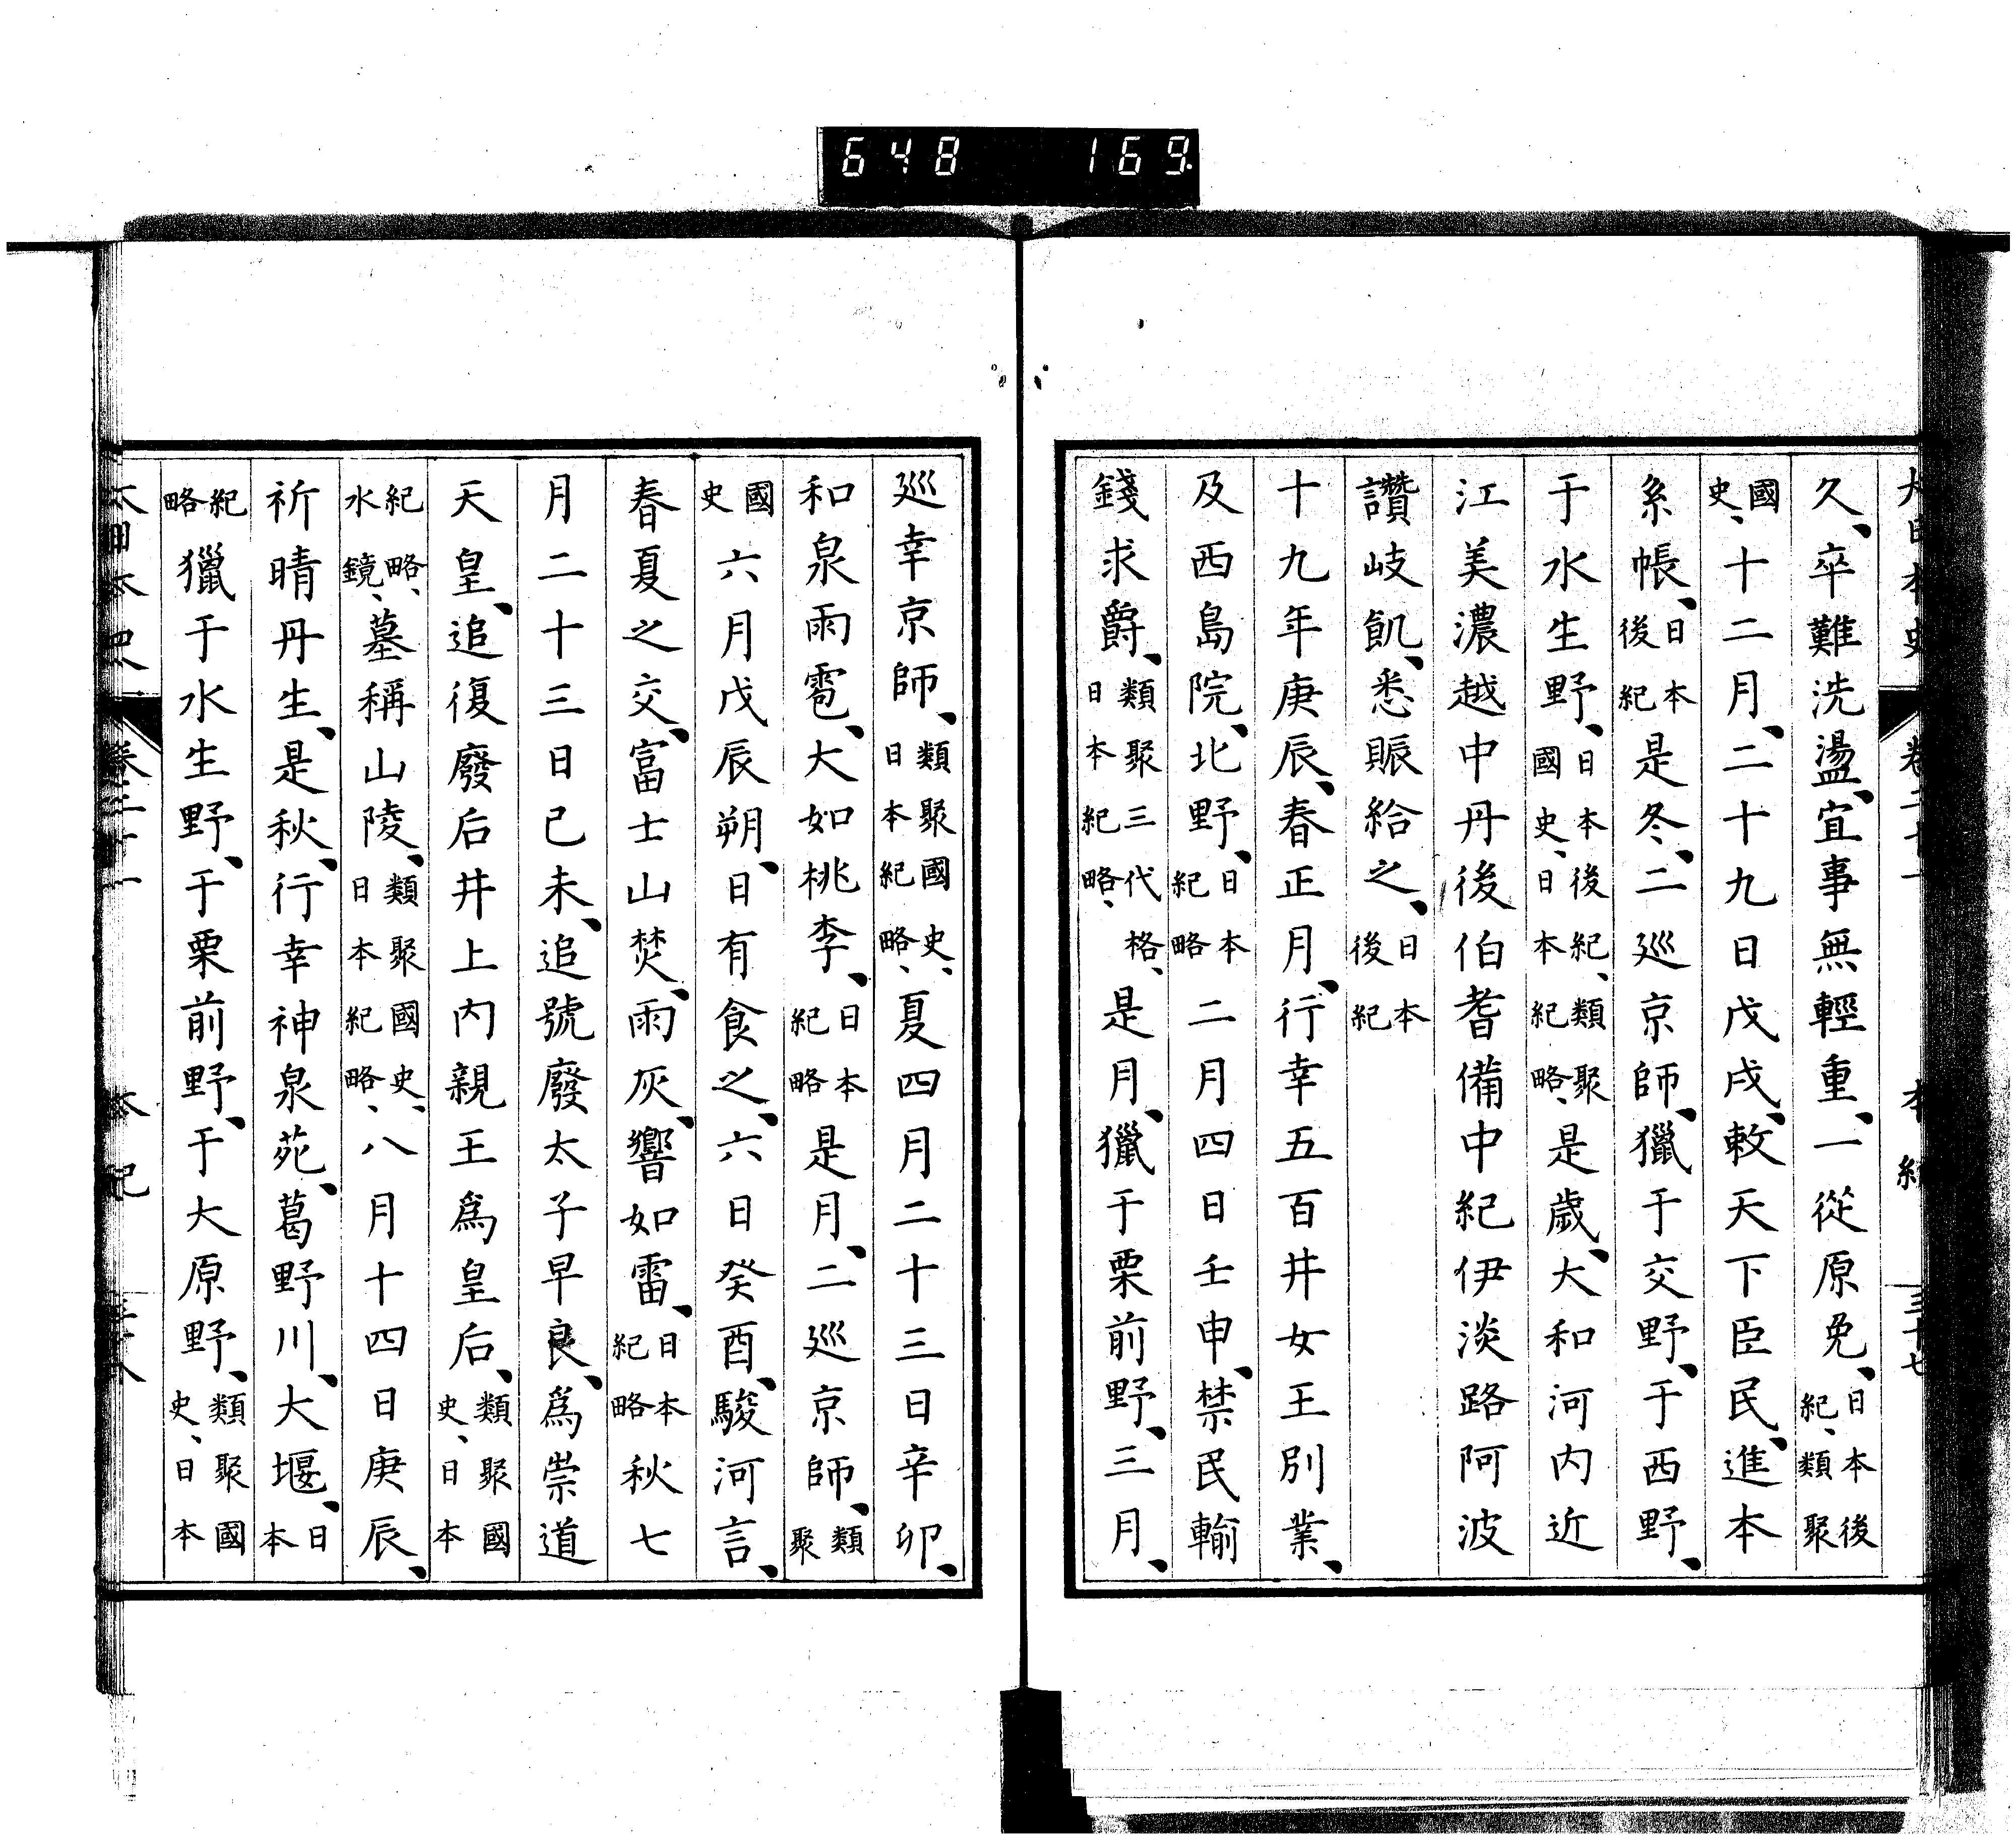 648 169
大日本史 卷二十一 本紀 三十七
久、卒難洗盪、宜事無輕重、一從原免、日本後紀、類聚
國史、十二月、二十九日戊戌、敕天下臣民、進本
系帳、日本後紀是冬、二巡京師、獵于交野、于西野、
于水生野、日本後紀、類聚國史、日本紀略、是歲、大和河内近
江美濃越中丹後伯耆備中紀伊淡路阿波
讚岐飢、悉賑給之、日本後紀
十九年庚辰、春正月、行幸五百井女王別業、
及西島院、北野、日本紀略二月四日壬申、禁民輸
錢求爵、類聚三代格、日本紀略、是月、獵于栗前野、三月、
巡幸京師、類聚國史、日本紀略、夏四月二十三日辛卯、
和泉雨雹、大如桃李、日本紀略是月、二巡京師、類聚
國史六月戊辰朔、日有食之、六日癸酉、駿河言、
春夏之交、富士山焚、雨灰、響如雷、日本紀略秋七
月二十三日己未、追號廢太子早良、爲崇道
天皇、追復廢后井上内親王爲皇后、類聚國史、日本
紀略、水鏡、墓稱山陵、類聚國史、日本紀略、八月十四日庚辰、
祈晴丹生、是秋、行幸神泉苑、葛野川、大堰、日本
紀略獵于水生野、于栗前野、于大原野、類聚國史、日本
大日本史 卷二十一 本紀 三十八